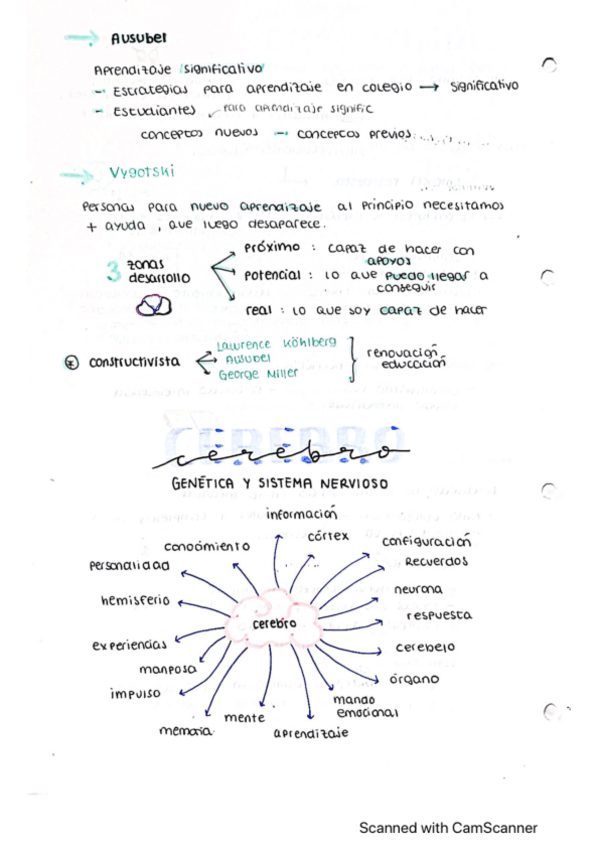 → Ausubel
Aprendizaje significativo
- Estrategias para aprendizaje en colegio → significativo
- Estudiantes para aprendizaje signific
conceptos nuevos → conceptos previos
→ Vygotski
Personas para nuevo aprendizaje al principio necesitamos
+ ayuda, que luego desaparece.
3 zonas desarrollo
próximo : capaz de hacer con apoyos
potencial : lo que puedo llegar a conseguir
real : lo que soy capaz de hacer
constructivista
Lawrence Köhlberg
Ausubel
George Miller
renovación educación
cerebro
GENÉTICA Y SISTEMA NERVIOSO
información
córtex
configuración
conocimiento
Recuerdos
personalidad
neurona
hemisferio
respuesta
cerebro
experiencias
cerebelo
manposa
órgano
impulso
mando emocional
mente
memoria
aprendizaje
Scanned with CamScanner